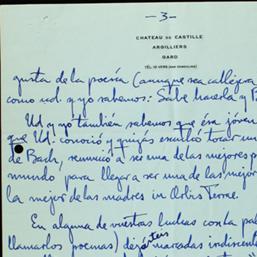 —3—
CHATEAU DE CASTILLE
ARGILLIERS
GARD
TÉL. 10 VERS (PAR REMOULINS)
gusta de la poesía (aunque sea callejera
como ud. y yo sabemos: Sabe hacerla y P
Ud y yo también sabemos que ésa jóven
que Ud. conoció y quizás escuchó tocar un
de Bach, renunció a ser una de las mejores p
mundo para llegar a ser una de las mejor
la mejor de las madres in Orbis Terrae.
En alguna de vuestras luchas con la pal
llamarlos poemas) dejasteis marcadas indiscuti